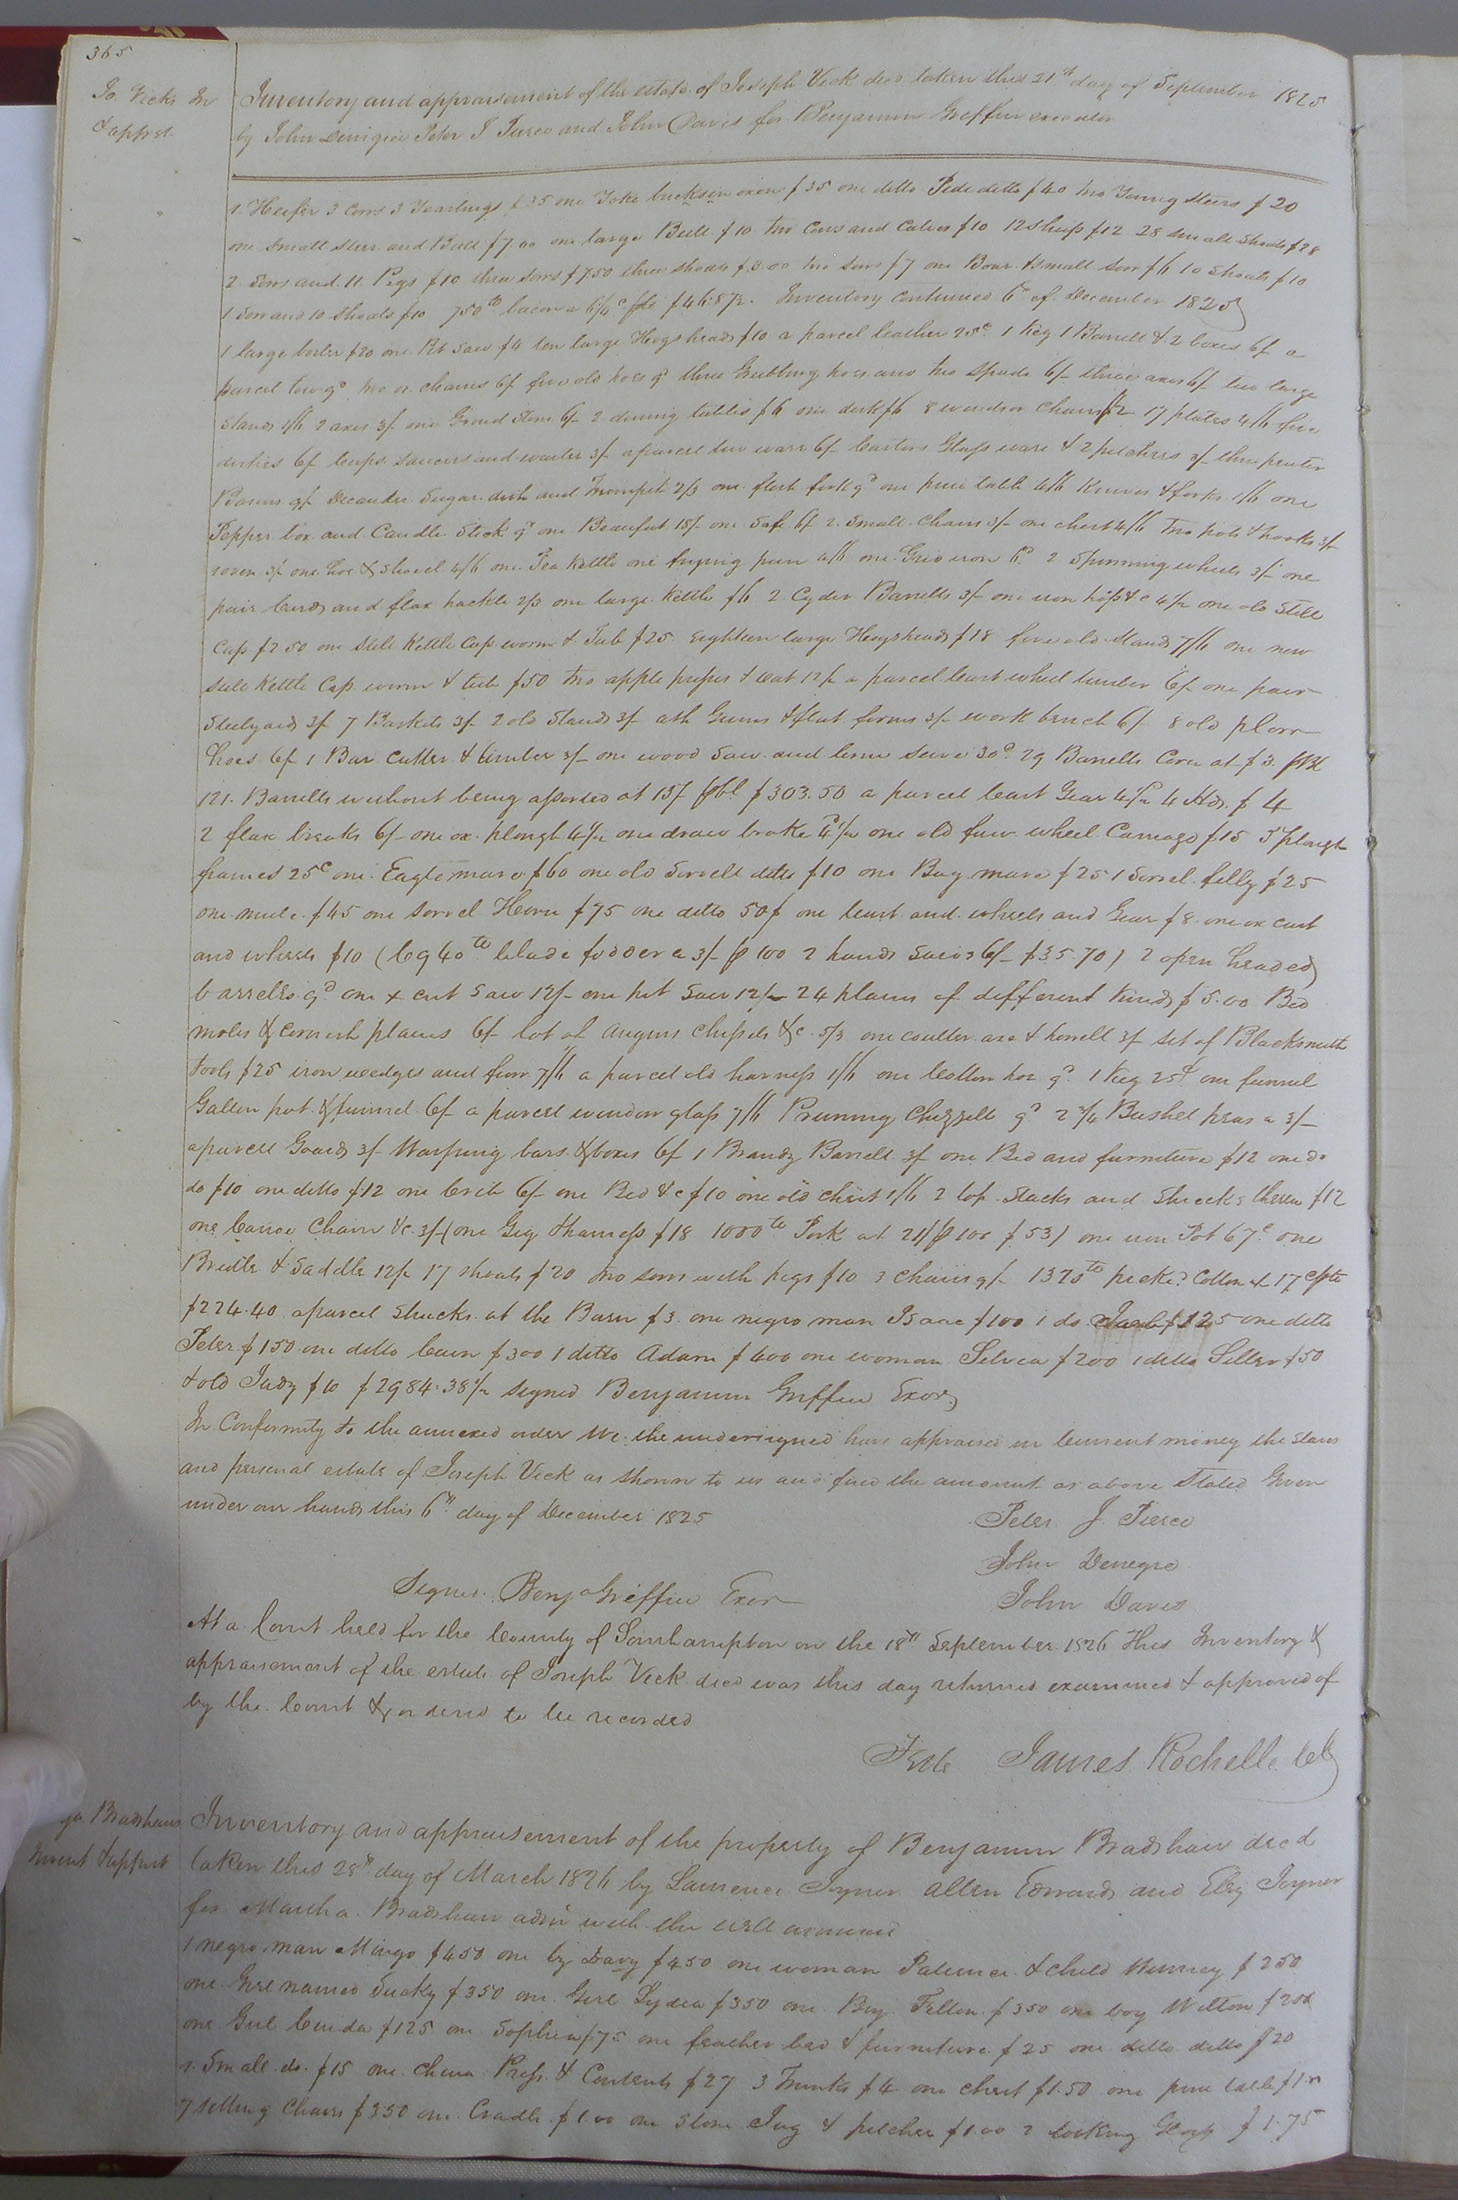 365
Jo. Vicks In
& apprst.
Inventory and appraisement of the estate of Joseph Vick decd taken this 21st day of September 1825
by John Denigree Peter J Pierce and John Davis for Benjamin Griffin executor
1 Heifer 3 Cows 3 Yearlings $35 one Yoke buckskin oxen $35 one ditto Pide ditto $40 two Young Steers $20
one small steer and Bull $7.00 one large Bull $10 two Cows and Calves $10 12 sheep $12 28 small Shoats $28
2 Sows and 11 Pigs $10 three Sows $7.50 three shoats $3.00 two sows $7 one Boar & small sow $6 10 Shoats $10
1 Sow and 10 Shoats $10 750lb bacon a 6/4c $46.87½. Inventory continued 6th of December 1825
1 large boiler $20 one Pit Saw $4 ten large Hogsheads $10 a parcel leather 25c 1 Keg 1 Barrell & 2 boxes 6/ a
parcel tow 9d two ox chains 6/ five old hoes 9d three Grubbing hoes and two Spade 6/ three axes 6/ two large
Stands 1/6 2 axes 3/ one Grind Stone 6/ 2 dining tables $6 one desk $6 8 windsor Chairs $2 17 plates 4/6 five
dishes 6/ Cups Saucers and waiter 3/ a parcel tin ware 6/ Castors Glass ware & 2 pitchers 3/ three pewter
Basons 9/ Decanter Sugar dish and 2/3 one flesh fork 9d one pine table 4/6 Knives & forks 1/6 one
Pepper box and Candle Stick 9d one Beaufat 15/ one Safe 6/ 2 Small Chairs 3/ one chest 4/6 Two pots & hooks 3/
oven 3/ one hoe & Shovel 4/6 one Tea Kettle one frying pan 4/6 one Grid iron 6d 2 Spinning wheels 3/ one
pair Cards and flax hackle 2/3 one large Kettle $6 2 Cyder Barrells 3/ one iron &c 4/6 one old Still
Cap $2.50 one Still Kettle Cap worm & Tub $25 eighteen large Hogsheads $18 five old stands 7/6 one new
Still Kettle Cap worm & tub $50 two apple presses & vat 12/ a parcel cart wheel timber 6/ one pair
Steelyards 3/ 7 Baskets 3/ 2 old Stands 3/ ash Gums & flat forms 3/ work bench 6/ 8 old plow
hoes 6/ 1 Bar Cutter & timber 3/ one wood Saw and lime sieve 30c 29 Barrells Corn at $3 pBl
121 Barrells without being assorted at 15/ pbl $303.50 a parcel Cart Gear 4/6 4 Hds $4
2 flax breaks 6/ one ox plough 4/6 one draw 4/6 one old four wheel Carriage $15 3 plough
frames 25c one Eagle mare $60 one old Sorrell ditto $10 one Bay mare $25 1 Sorrel filly $25
one mule $45 one sorrel Horse $75 one ditto 50$ one Cart and wheels and Gear $8 one ox cart
and wheels $10 (6940lb blade fodder a 3/ p 100 2 hand Saws 6/ $35.70) 2 open headed
barrells 9d one x cut Saw 12/ one pit Saw 12/ 24 plains of different Kinds $5.00 Bed
moles & Cornish plains 6/ lot of Augurs Chissels &c 5/3 one coulter axe & howell 3/ set of Blacksmith
Tools $25 iron wedges and 7/6 a parcel old harness 1/6 one Cotton hoe 9d 1 Keg 25c one funnel
Gallon pot & funnel 6/ a parcel window glass 7/6 Pruning Chizzell 9d 2¾ Bushel peas a 3/
a parcel Gourds 3/ Warping bars & boxes 6/ 1 Brandy Barrell 3/ one Bed and furniture $12 one do
do $10 one ditto $12 one Crib 6/ one Bed &c $10 one old chest 1/6 2 top Stacks and Shucks $12
one Canoe Chain &c 3/ (one Gig & harness $18 1000lb Pork at 21/ p 100 $53) one iron Pot 67c one
Bridle & Saddle 12/ 17 shoats $20 two sows with pigs $10 3 chairs 9/ 1320lb picked Cotton at 17 cpts
$224.40 a parcel Shucks at the Barn $3 one negro man Isaac $100 1 do Jacob $125 one ditto
Peter $150 one ditto Cain $300 1 ditto Adam $400 one woman Selvea $200 1 ditto Siller $50
& old Judy $10 $2984.38½ signed Benjamin Griffin Exor
In Conformity to the annexed order We the undersigned have appraised in Current money the Slaves
and personal estate of Joseph Vick as shown to us and find the amount as above Stated Given
under our hands this 6th day of December 1825
Peter J Pierce
John Denegre
Signed Benja Griffin Exor
John Davis
At a Court held for the County of Southampton on the 18th September 1826 This Inventory &
appraisement of the estate of Joseph Vick decd was this day returned examined & approved of
by the Court & ordered to be recorded
Teste James Rochelle Clk
Bradshaws
Invent & apprst
Inventory and appraisement of the property of Benjamin Bradshaw decd
taken this 28th day of March 1826 by Lawrence Joyner Allen Edwards and Eley Joyner
for Martha Bradshaw admr with the will annexed
1 negro man Mingo $450 one boy Davy $450 one woman Patience & child $250
one Girl named Sucky $350 one Girl Lydia $350 one Boy $350 one boy Wilton $200
one Girl $125 one Sophia $75 one feather bed & furniture $25 one ditto ditto $20
2 Small do $15 one China Press & Contents $27 3 Trunks $4 one chest $1.50 one pine table
7 sitting Chairs $3.50 one Cradle $1.00 one Stone Jug & pitcher $1.00 2 looking Glass $1.75